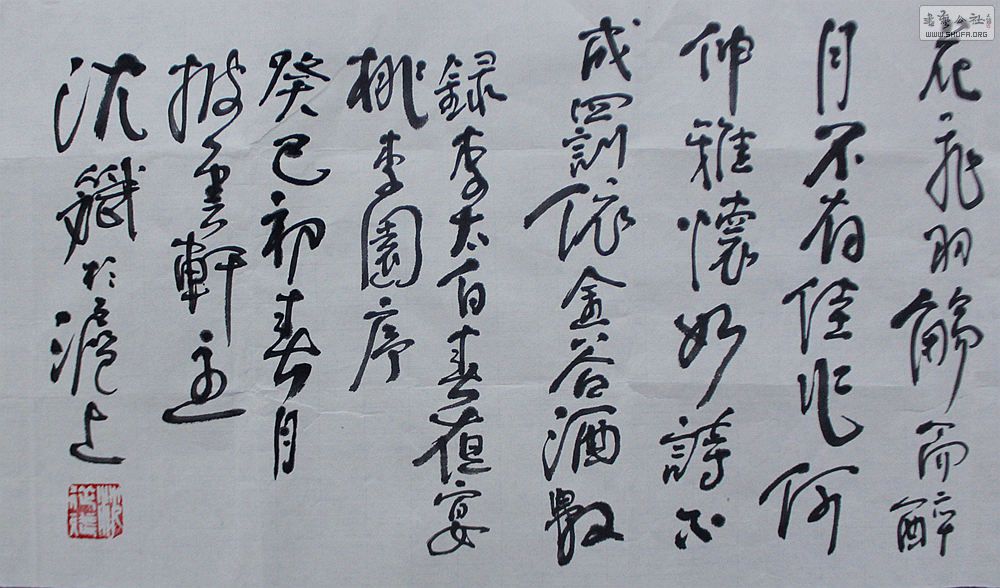 花飛羽觴而醉
月不有佳作何
伸雅懷如詩不
成罰依金谷酒數
録李太白春夜宴
桃李園序
癸巳初春月
披雲軒主
沈於滬上
书法公社
WWW.SHUFA.ORG